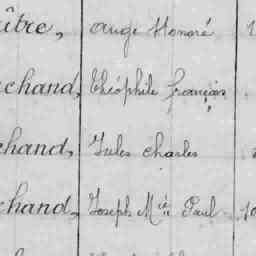 ître, Ange Honoré
chand, Théophile François
chand, Jules Charles
chand, Joseph Mie Paul